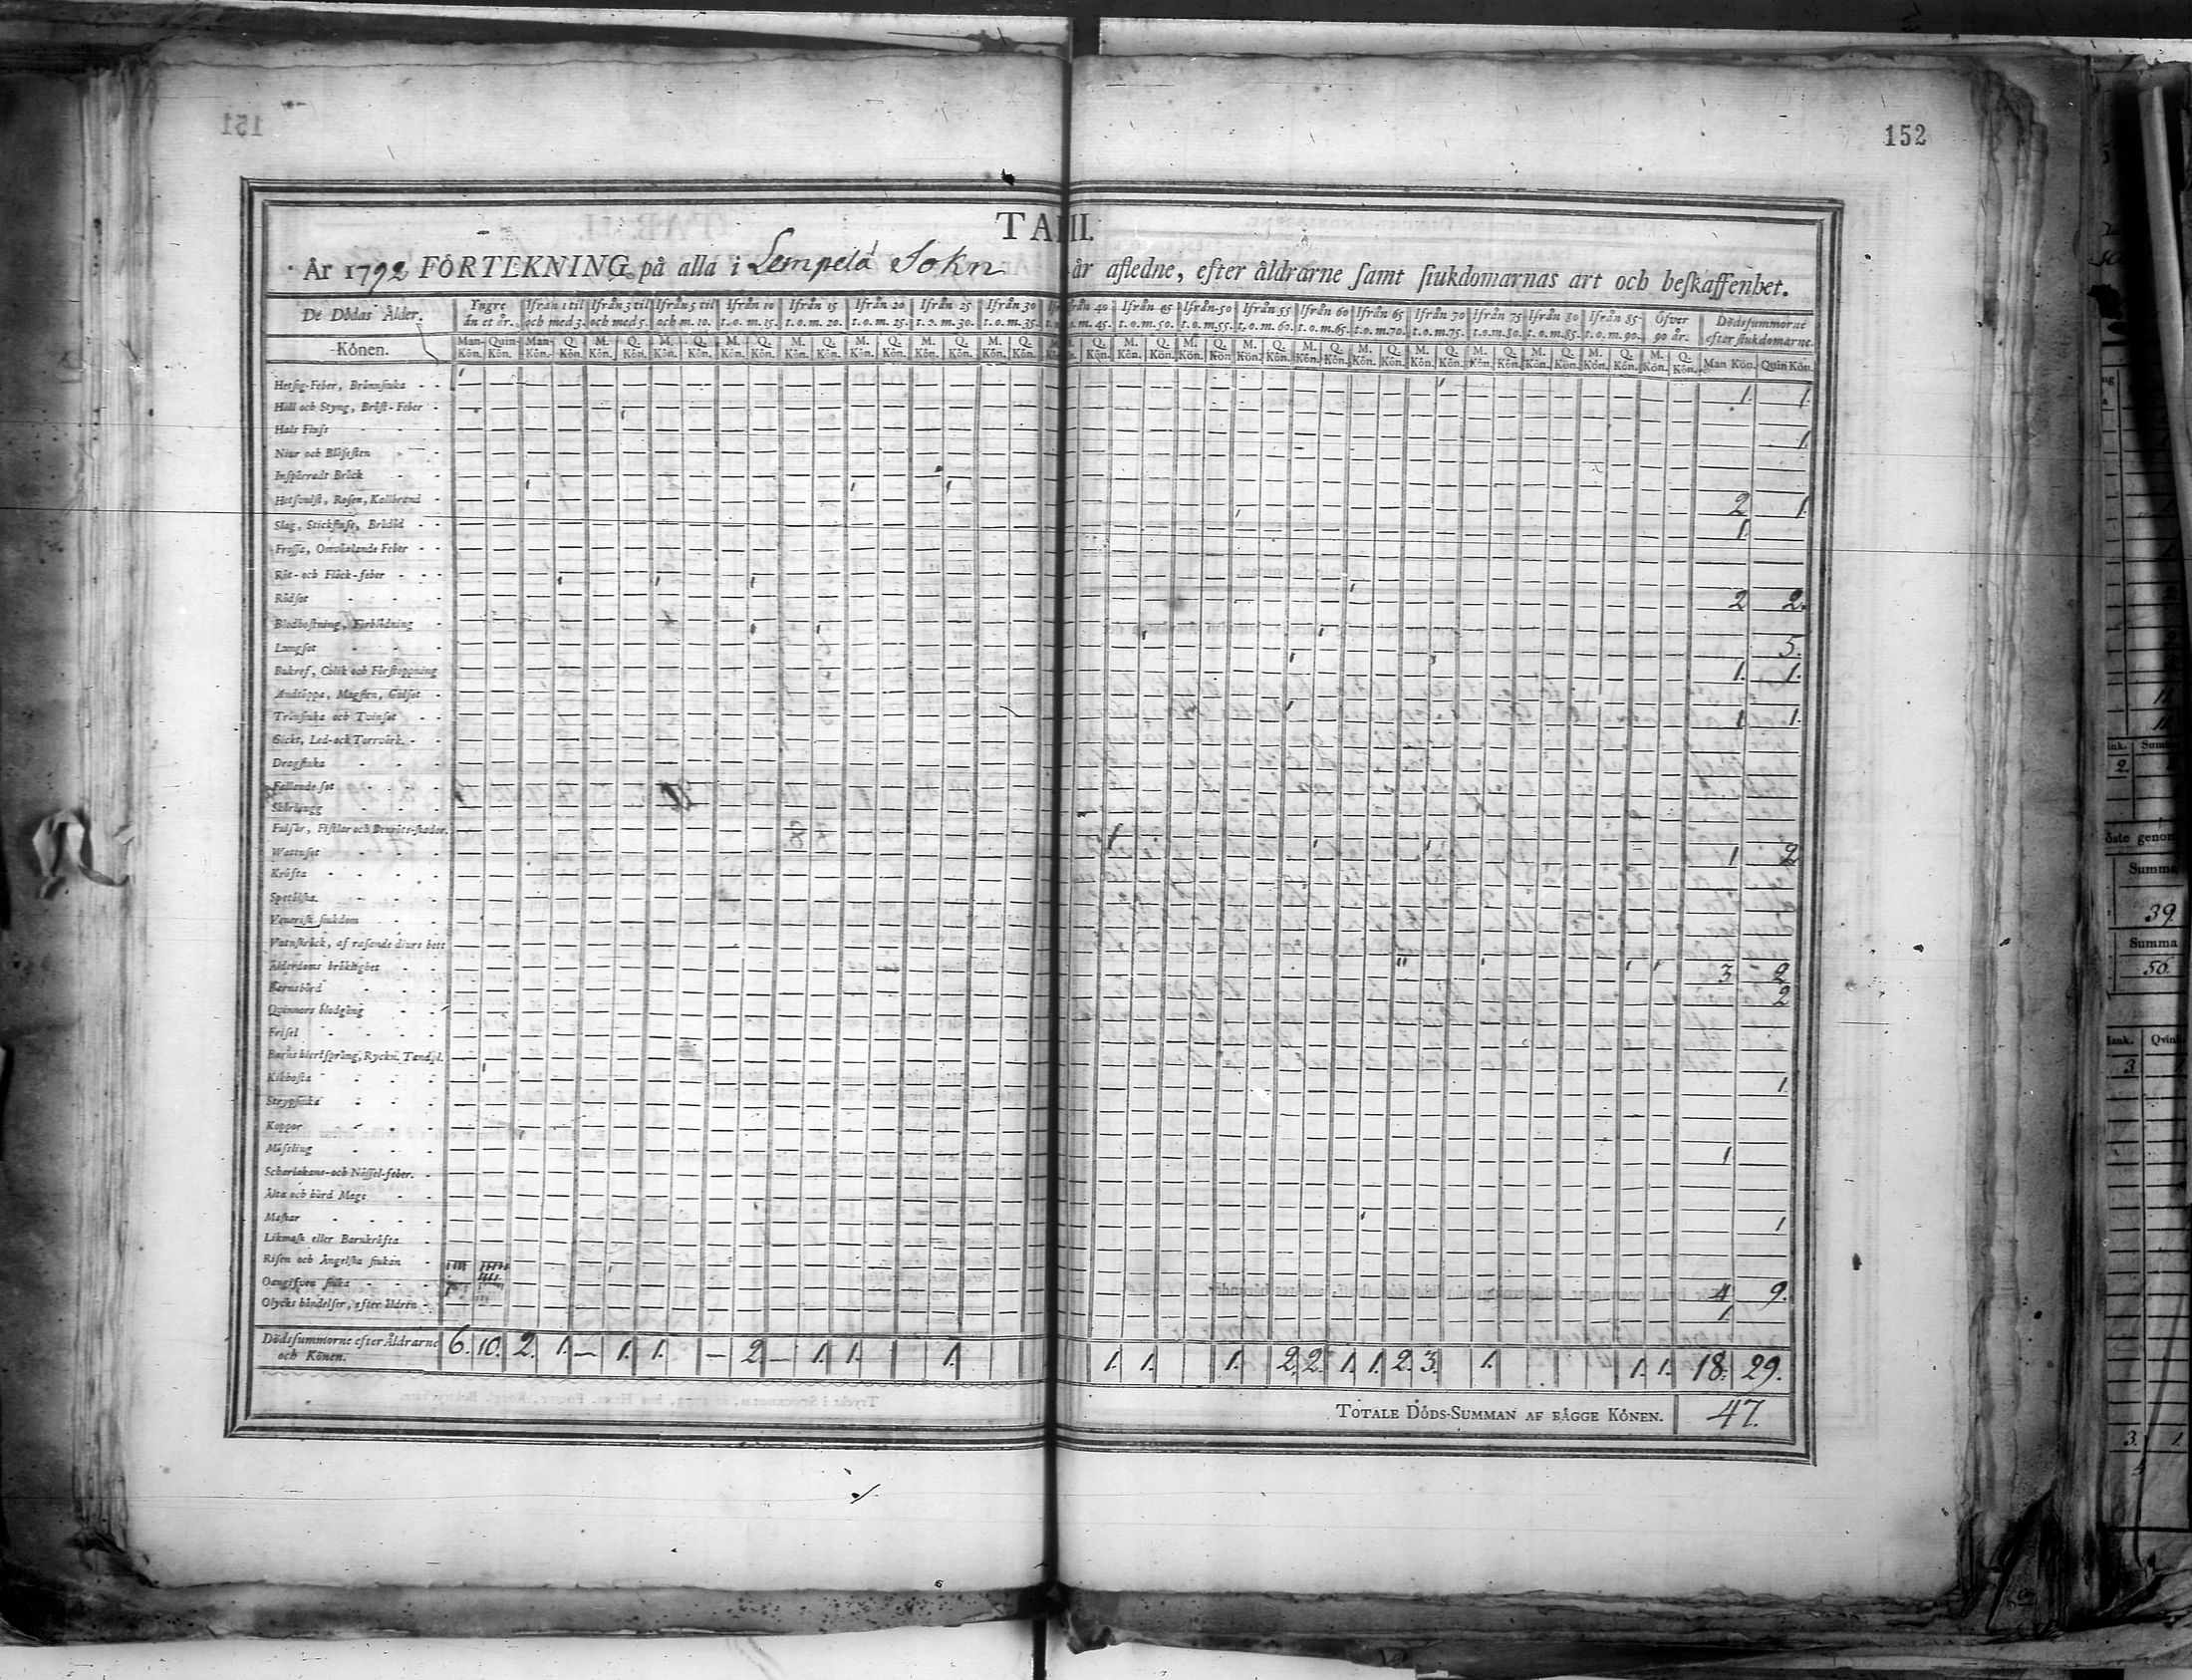 152
TAB. II.
År 1792 FÖRTEKNING på alla i Lempelä Sokn år afledne, efter åldrarne samt siukdomarnas art och beskaffenhet.
De Dödas Ålder. Yngre än et år. Ifrån 1 til och med 3. Ifrån 3 til och med 5. Ifrån 5 til och m. 10. Ifrån 10 t.o.m. 15. Ifrån 15 t.o.m. 20. Ifrån 20 t.o.m. 25. Ifrån 25 t.o.m. 30. Ifrån 30 t.o.m. 35. Ifrån 40 t.o.m. 45. Ifrån 45 t.o.m. 50. Ifrån 50 t.o.m. 55. Ifrån 55 t.o.m. 60. Ifrån 60 t.o.m. 65. Ifrån 65 t.o.m. 70. Ifrån 70 t.o.m. 75. Ifrån 75 t.o.m. 80. Ifrån 80 t.o.m. 85. Ifrån 85 t.o.m. 90. Öfver 90 år. Dödssummorne efter siukdomarne.
Könen. Man-Kön. Quin-Kön. Man-Kön. Q. Kön. M. Kön. Q. Kön. Man Kön. Quin Kön.
Hetsig-Feber, Brännsiuka 1. 1.
Håll och Styng, Bröst-Feber
Hals Fluss 1.
Niur och Blåsesten
Inspärradt Bråck
Hetsvulst, Rosen, Kallbrand 2 1.
Slag, Stickfluss, Brådöd 1.
Frossa, Omväxlande Feber
Röt- och Fläck-feber
Rödsot 2 2.
Blodhostning, Förblödning
Lungsot 5.
Bukref, Colik och Förstoppning 1. 1.
Andtäppa, Magsten, Gulsot
Trånsiuka och Tvinsot 1 1.
Gickt, Led- och Torrvärk.
Dragsiuka
Fallande sot
Skörbjugg
Fulsår, Fistlar och Benröts-skador.
Wattusot 1 2
Kräfta
Spetälska.
Venerisk siukdom
Vatuskräck, af rasande diurs bett
Ålderdoms bräklighet 3 2
Barnsbörd 2
Quinnors blodgång
Frisel
Barns hiertsprång, Ryckn. Tandsl.
Kikhosta 1.
Strypsiuka
Koppor
Mässling 1
Scharlakans- och Nässel-feber.
Älta och hård Mage
Maskar
Likmask eller Barnkräfta 1
Risen och Ängelska siukan
Oangifven siuka 4 9.
Olycks händelser, efter åldren 1.
Dödssummorne efter Åldrarne och Könen. 6. 10. 2. 1. — 1. 1. — 2 — 1. 1. 1. 1. 1. 1. 2. 2. 1. 1. 2. 3. 1. 1. 1. 18. 29.
TOTALE DÖDS-SUMMAN AF BÄGGE KÖNEN. 47.